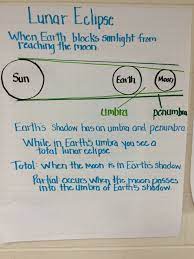 Lunar Eclipse
When Earth blocks sunlight from
reaching the moon.
Sun Earth Moon
umbra penumbra
Earth's shadow has an umbra and penumbra
While in Earth's umbra you see a
total lunar eclipse
Total: When the moon is in Earth's shadow
Partial: occurs when the moon passes
into the umbra of Earth's shadow.